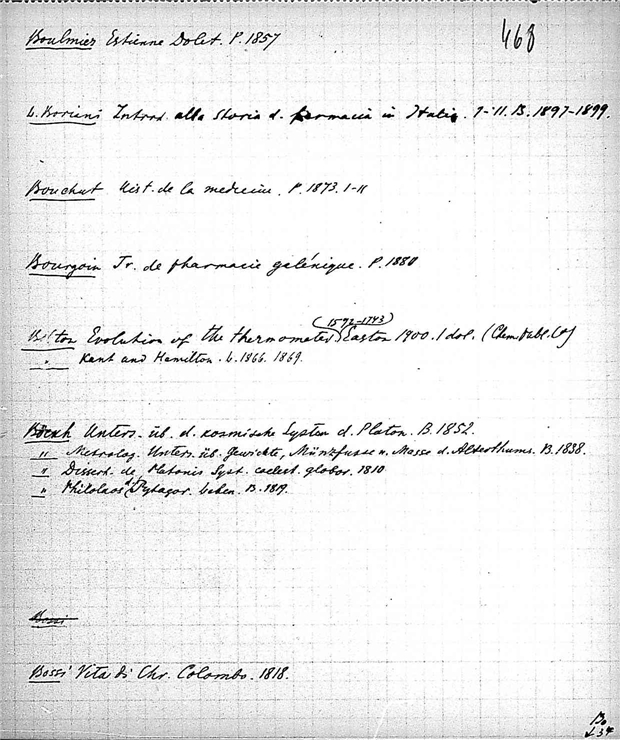 468
Boulmier Estienne Dolet. P. 1857
L. Borieni Introd. alla storia d. farmacia in Italia. I-II. B. 1897-1899.
Bouchut Hist. de la medecine. P. 1873. I-II
Bourgoin Tr. de pharmacie galénique. P. 1880
(1592-1743)
Bolton Evolution of the thermometer Easton 1900. 1 dol. (Chem. Publ. Co)
" Kant and Hamilton. L. 1866. 1869.
Böckh Unters. üb. d. kosmische System d. Platon. B. 1852.
" Metrolog. Unters. üb. Gewichte, Münzfusse u. Masse d. Alterthums. B. 1838.
" Dissert. de Platonis Syst. caelest. globor. 1810.
" Philolaos d. Pytagor. Lehren. B. 1819.
Bossi
Bossi Vita di Chr. Colombo. 1818.
Bo